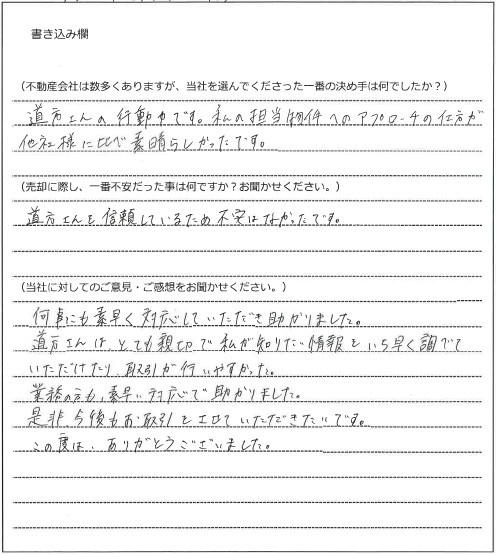 書き込み欄
（不動産会社は数多くありますが、当社を選んでくださった一番の決め手は何でしたか？）
道方さんの行動力です。私の担当物件へのアプローチの仕方が
他社様に比べ素晴らしかったです。
（売却に際し、一番不安だった事は何ですか？お聞かせください。）
道方さんを信頼しているため不安はなかったです。
（当社に対してのご意見・ご感想をお聞かせください。）
何事にも素早く対応していただき助かりました。
道方さんは、とても親切で私が知りたい情報をいち早く調べて
いただけたり、取引が行いやすかった。
業務の方も、素早い対応で助かりました。
是非、今後もお取引をさせていただきたいです。
この度は、ありがとうございました。